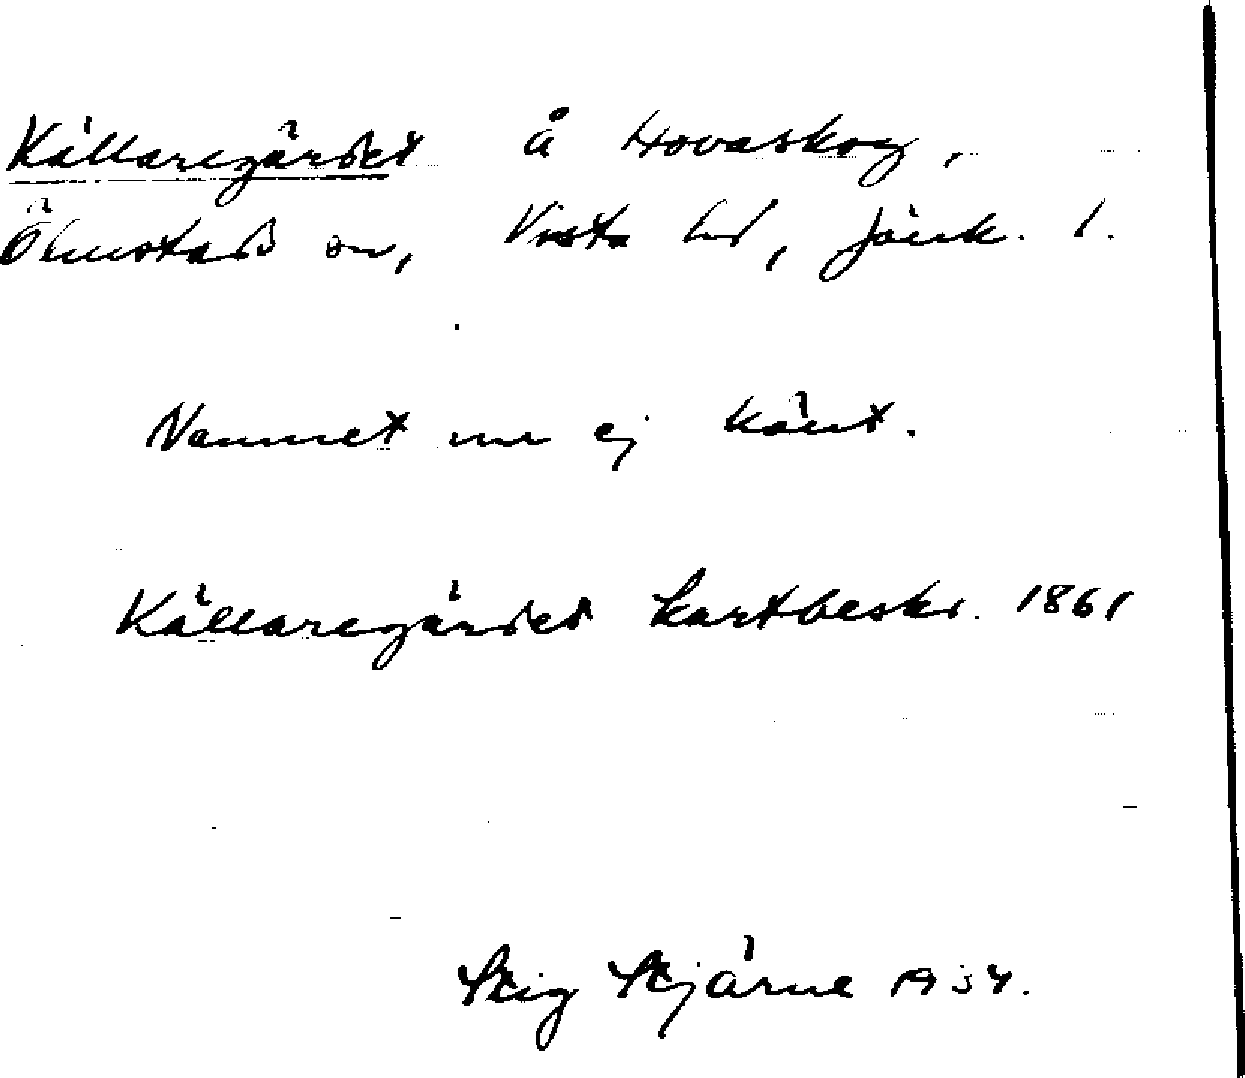 Källaregärdet å Hovaskog,
Ölmstad sn, Vista hd, Jönk. l.
Namnet nu ej känt.
Källaregärdet kartbeskr. 1861
Stig Stjärne 1934.